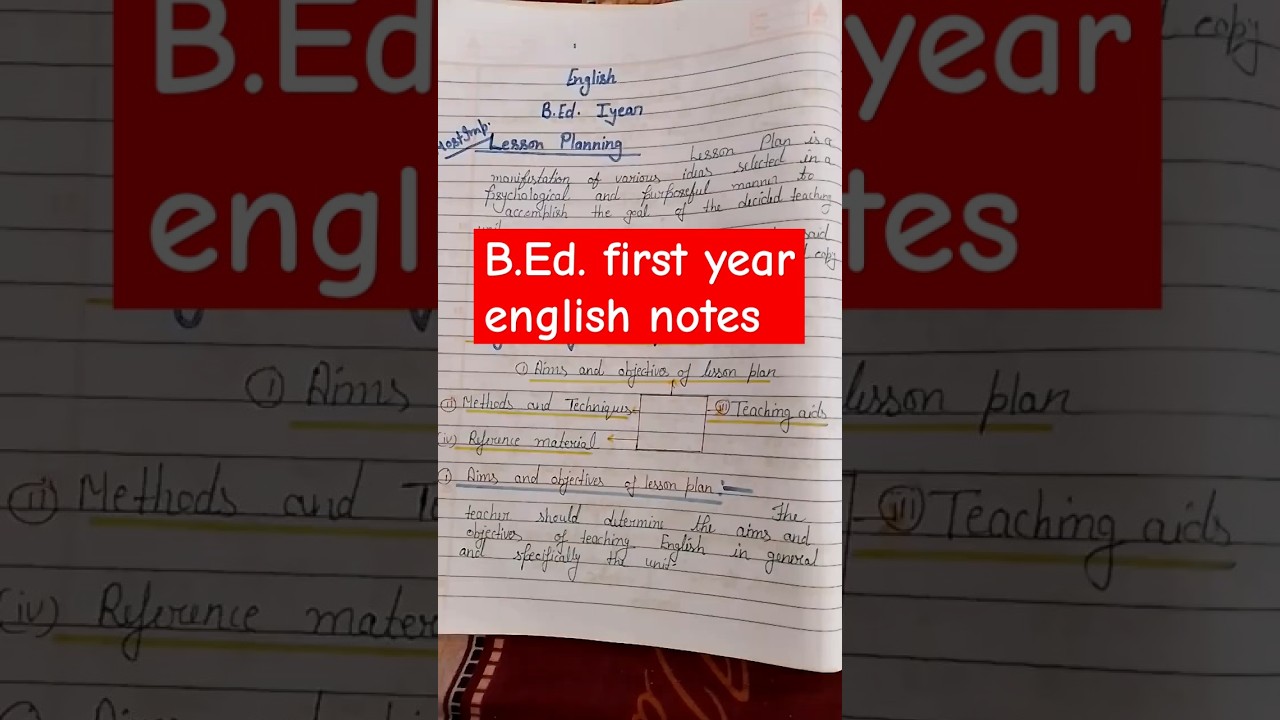 English
B.Ed. I year
Most Imp. Lesson Planning
Lesson Plan is a
manifistation of various ideas selected in a
psychological and purposeful manner to
accomplish the goal of the decided teaching
unit
said
copy
B.Ed. first year
english notes
(i) Aims and objectives of lesson plan
(ii) Methods and Techniques
(iii) Teaching aids
(iv) Reference material
(i) Aims and objectives of lesson plan :-
The
teacher should determine the aims and
objectives of teaching English in general
and specifically the unit.